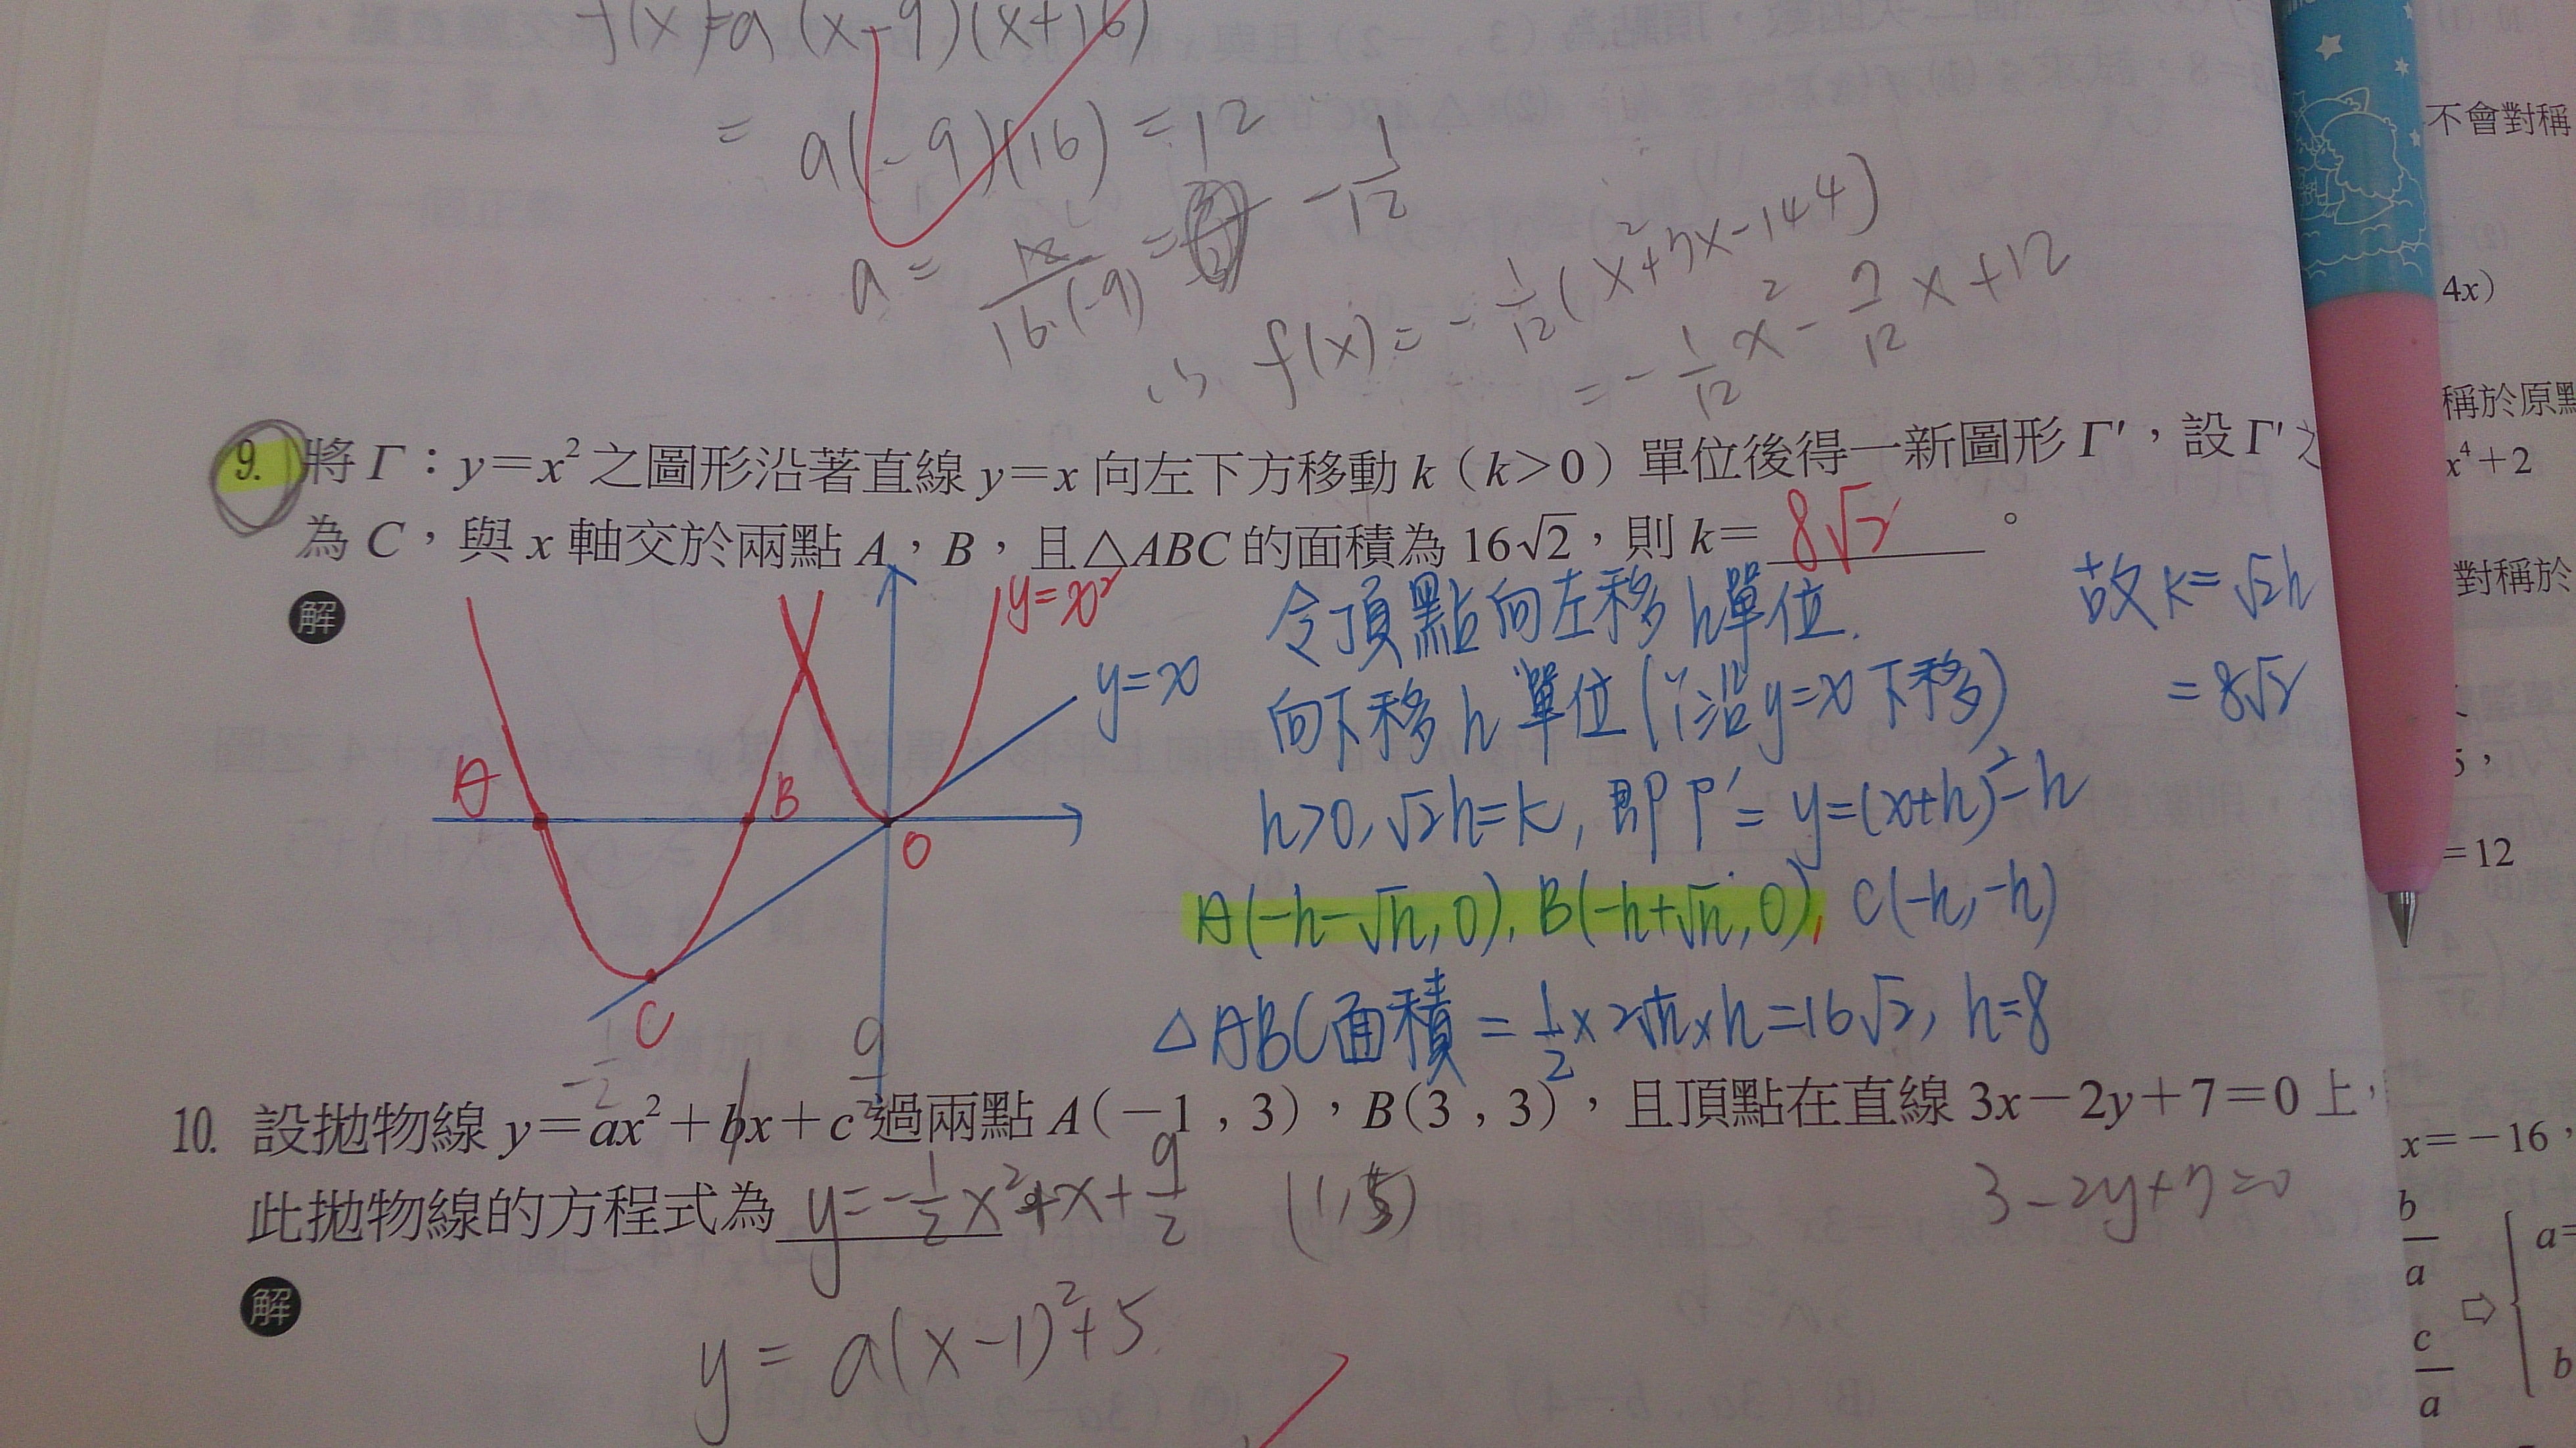 f(x)=a(x-9)(x+16)
= a(-9)(16) = 12
a = 12/16·(-9) = -1/12
∴ f(x) = -1/12(x²+7x-144)
= -1/12x² - 7/12x + 12
9. 將 Γ：y＝x² 之圖形沿著直線 y＝x 向左下方移動 k（k＞0）單位後得一新圖形 Γ′，設 Γ′ 之
為 C，與 x 軸交於兩點 A，B，且△ABC 的面積為 16√2，則 k＝ 8√2 。
解
y=x²
y=x
A
B
O
C
令頂點向左移 h單位.
向下移 h 單位(∵沿 y=x 下移)
h>0, √2h=k, 即 Γ′= y=(x+h)²-h
A(-h-√h, 0), B(-h+√h, 0), C(-h, -h)
△ABC面積 = 1/2 × 2√h × h = 16√2, h=8
故 k= √2h
= 8√2
-1/2
1
9/2
10. 設拋物線 y＝ax²＋bx＋c 過兩點 A（－1，3），B（3，3），且頂點在直線 3x－2y＋7＝0 上，
此拋物線的方程式為 y=-1/2x²+x+9/2
(1,5)
3-2y+7=0
解
y = a(x-1)²+5
不會對稱
4x）
稱於原點
x⁴＋2
對稱於
＝12
x＝－16，
b/a
c/a
⇨
a=
b